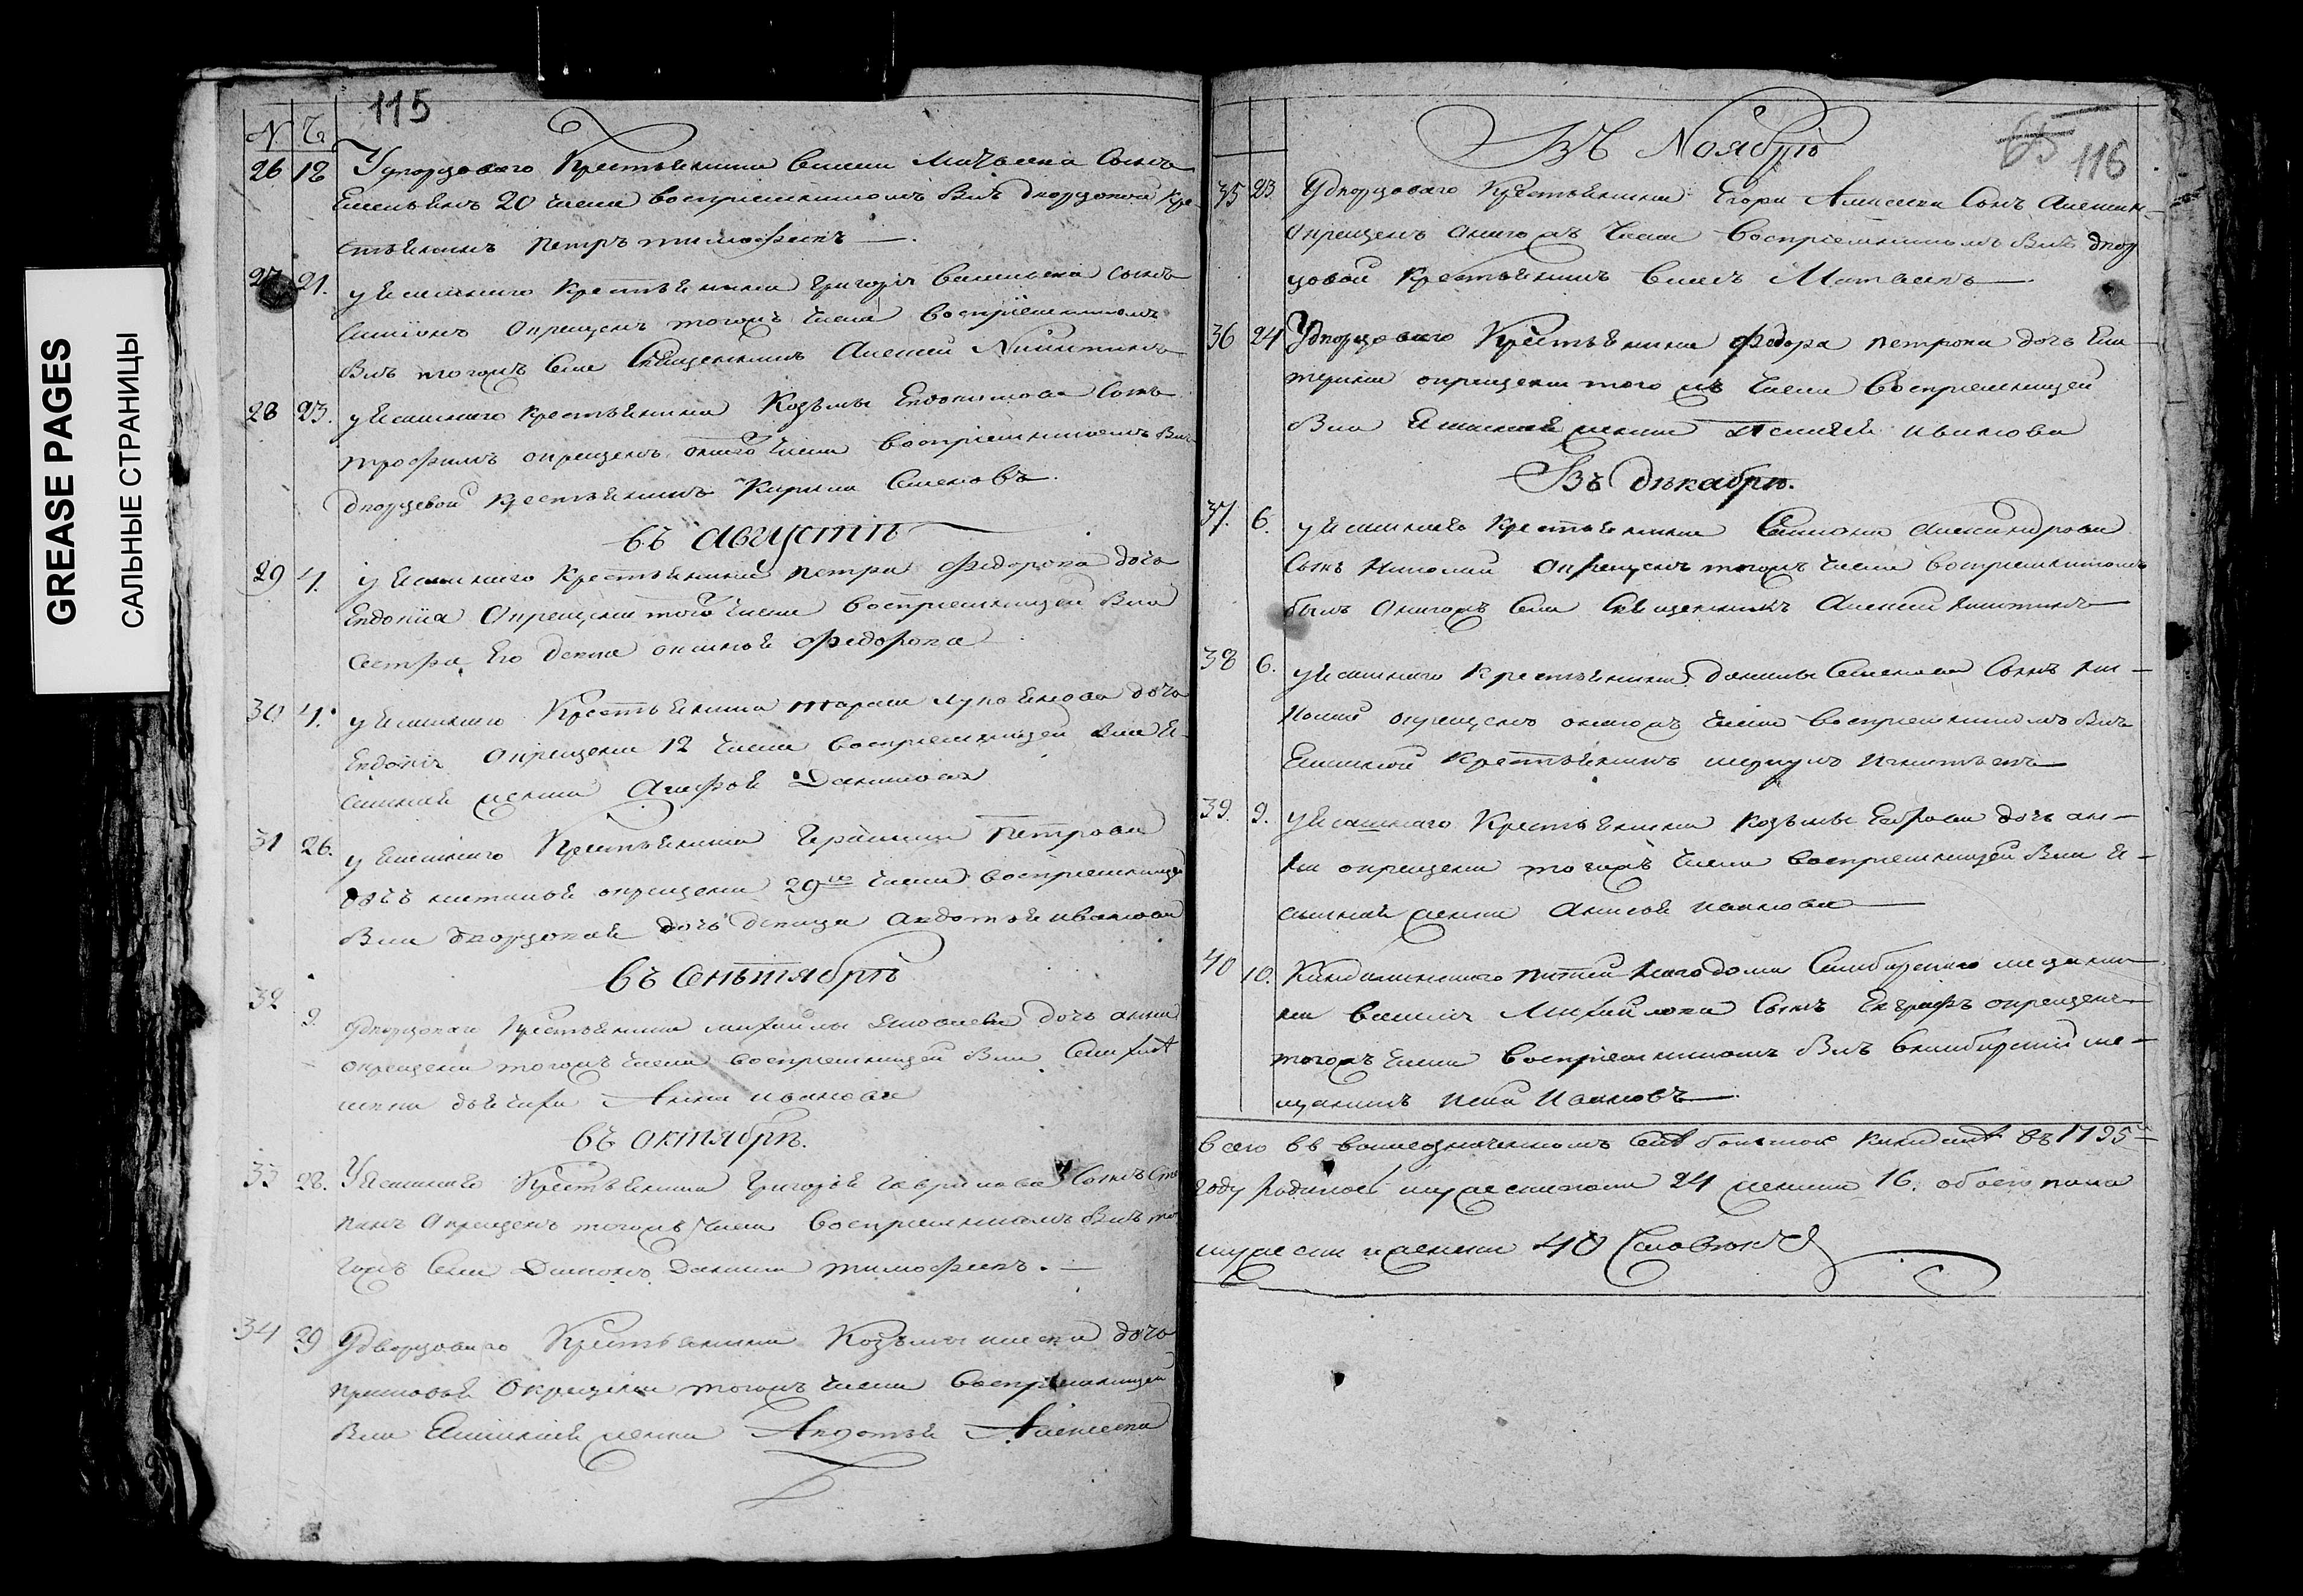 GREASE PAGES
САЛЬНЫЕ СТРАНИЦЫ
115
N Ч
26 18 У дворцоваго Крестьянина Сынъ
Емельянъ 20 числа воспріемникомъ былъ дворцовой Кре-
стьянинъ петръ тимофеевъ
27 21. у ясашнаго Крестьянина григорія Васильева сынъ
Симіонъ окрещенъ тогожъ числа воспріемникомъ
былъ тогожъ села Священникъ Алексей Никитинъ
28 23. у ясашнаго крестьянина Козьмы Евдокимова Сынъ
трофимъ окрещенъ онаго числа воспріемникомъ былъ
дворцовой крестьянинъ Кирила Семеновъ
въ августѣ
29 4. у ясашнаго Крестьянина петра федорова дочь
Евдокія Окрещена того числа воспріемницей была
сестра Его девка федорова
30 4. у ясашнаго Крестьянина тараса дочь
Евдокія окрещена 12 числа воспріемницей была я-
сашная женка Агафья Данилова
31 26. у ясашнаго Крестьянина Герасима Петрова
дочь наталья окрещена 29го числа воспріемницей
была дворцовая дочь девица авдотья иванова
въ сентябрѣ
32 9. У дворцоваго Крестьянина михайлы дочь анна
окрещена тогожъ числа воспріемницей была
дьячиха Анна иванова
въ октябрѣ.
33 28. У ясашнаго Крестьянина Григорья гаврилова Сынъ Сте
панъ Окрещенъ тогожъ числа воспріемникомъ былъ то
гожъ села Дьяконъ Данила тимофеевъ.
34 29 У дворцоваго Крестьянина Козьмы дочь
прасковья Окрещена тогожъ числа Воспріемницей
была Ясашная женка Авдотья Алексеева
65 116
Въ Ноябрѣ
35 23 У дворцоваго Крестьянина Егора Алексеева Сынъ
окрещенъ оногожъ числа Воспріемникомъ былъ двор
цовой Крестьянинъ Матвеевъ
36 24 У дворцоваго Крестьянина федора петрова дочь Ека-
терина окрещена того жъ числа Воспріемницей
была Ясашная женка иванова
Въ декабрѣ.
37. 6. у ясашнаго Крестьянина Симиона александрова
Сынъ Николай Окрещенъ тогожъ числа воспріемникомъ
былъ оногожъ села Священникъ Алексей никитинъ
38 6. у ясашнаго Крестьянина данилы Семенова Сынъ ни-
колай окрещенъ оногожъ числа воспріемникомъ былъ
Ясашной Крестьянинъ игнатьевъ
39. 9. у ясашнаго Крестьянина Козьмы дочь ан-
на окрещена тогожъ числа воспріемницей была я-
сашная женка анисья
40 10. питейнаго дома Симбирскаго мещани-
на василія Михайлова Сынъ Евграфъ окрещенъ
тогожъ числа воспріемникомъ былъ синбирской ме-
щанинъ
всего въ вышеозначенномъ селѣ въ 1795м
году родилось мужеска пола 24 женска 16. обоего пола
мужеска и женска 40 Человекъ